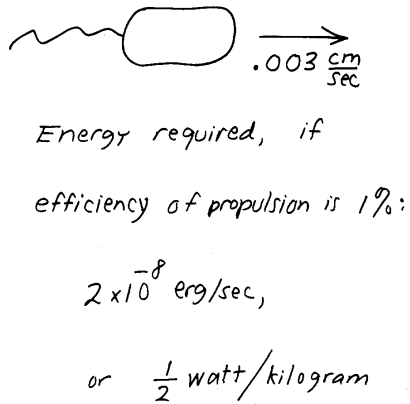 .003 cm/sec
Energy required, if
efficiency of propulsion is 1%:
2 x 10⁻⁸ erg/sec,
or 1/2 watt/kilogram